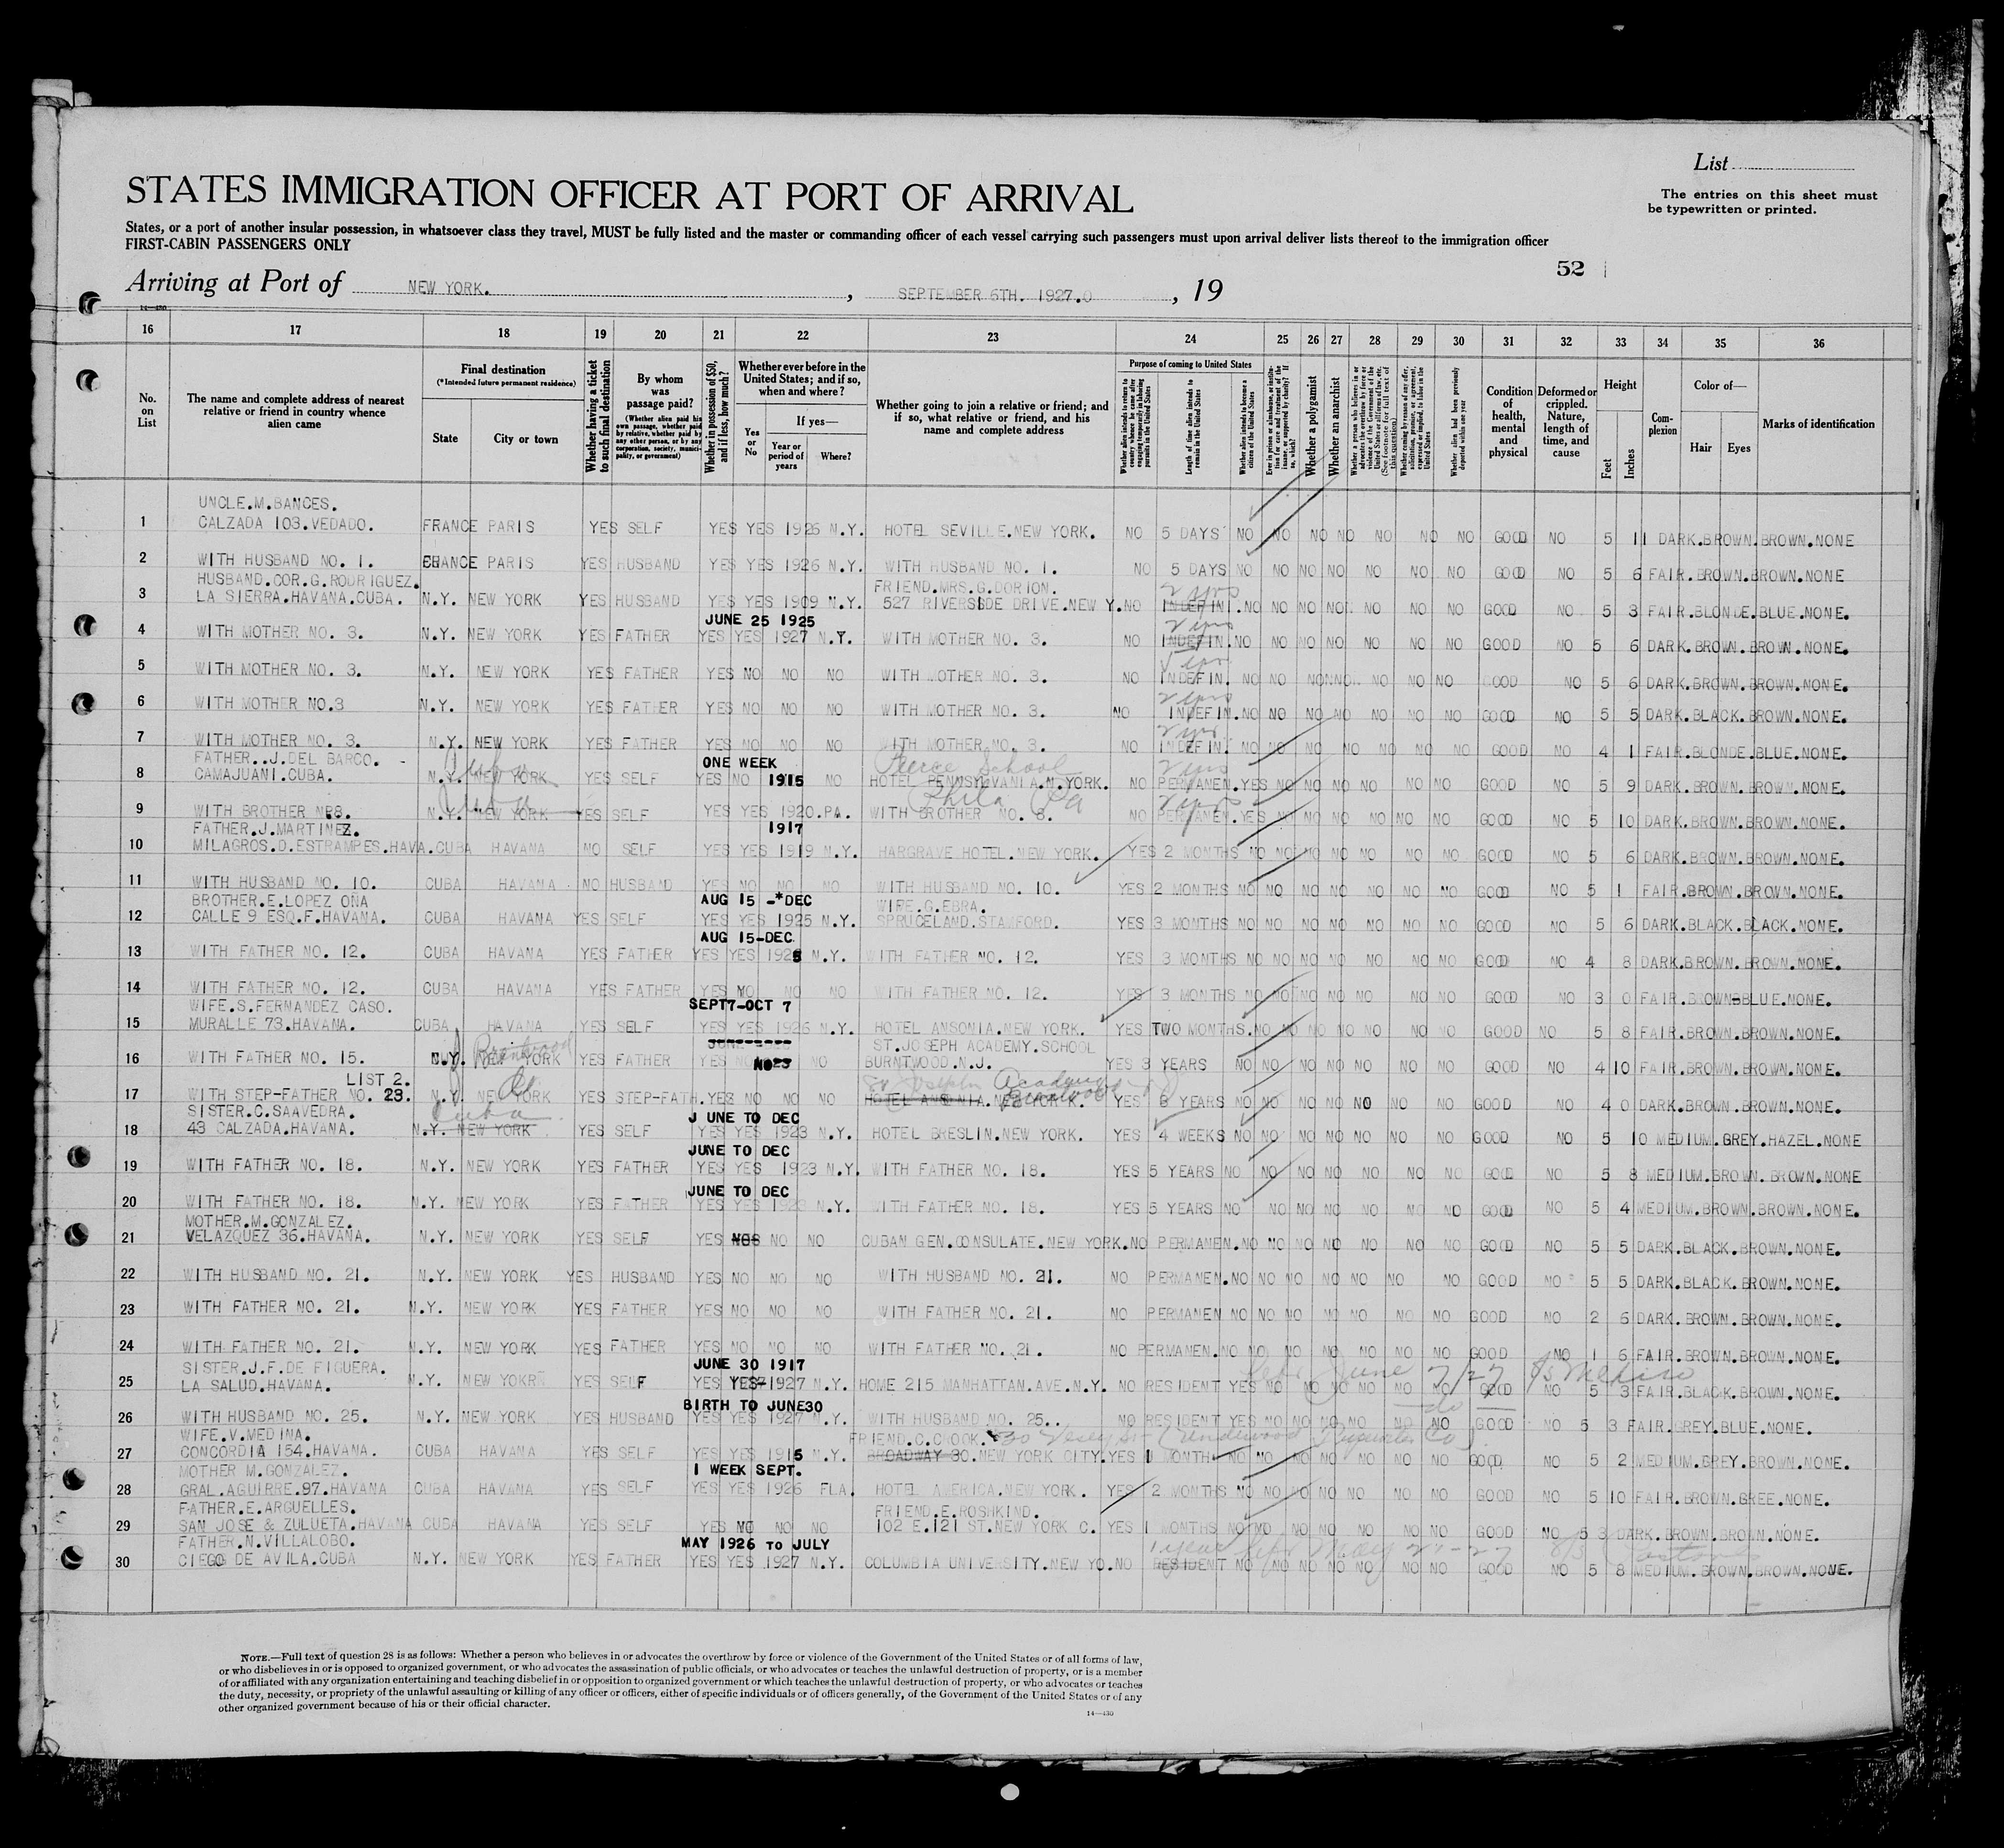 List
STATES IMMIGRATION OFFICER AT PORT OF ARRIVAL
The entries on this sheet must
be typewritten or printed.
States, or a port of another insular possession, in whatsoever class they travel, MUST be fully listed and the master or commanding officer of each vessel carrying such passengers must upon arrival deliver lists thereof to the immigration officer
FIRST-CABIN PASSENGERS ONLY
52
Arriving at Port of NEW YORK. , SEPTEMBER 6TH. 1927. , 19
14—430
16 17 18 19 20 21 22 23 24 25 26 27 28 29 30 31 32 33 34 35 36
No. on List
The name and complete address of nearest relative or friend in country whence alien came
Final destination (*Intended future permanent residence)
State
City or town
Whether having a ticket to such final destination
By whom was passage paid?
(Whether alien paid his own passage, whether paid by relative, whether paid by any other person, or by any corporation, society, municipality, or government)
Whether in possession of $50, and if less, how much?
Whether ever before in the United States; and if so, when and where?
Yes or No
If yes—
Year or period of years
Where?
Whether going to join a relative or friend; and if so, what relative or friend, and his name and complete address
Purpose of coming to United States
Whether alien intends to return to country whence he came after engaging temporarily in laboring pursuits in the United States
Length of time alien intends to remain in the United States
Whether alien intends to become a citizen of the United States
Ever in prison or almshouse, or institution for care and treatment of the insane, or supported by charity? If so, which?
Whether a polygamist
Whether an anarchist
Whether a person who believes in or advocates the overthrow by force or violence of the Government of the United States or all forms of law, etc. (See footnote for full text of this question)
Whether coming by reason of any offer, solicitation, promise, or agreement, expressed or implied, to labor in the United States
Whether alien had been previously deported within one year
Condition of health, mental and physical
Deformed or crippled. Nature, length of time, and cause
Height
Feet
Inches
Complexion
Color of—
Hair
Eyes
Marks of identification
UNCLE.M.BANCES.
1 CALZADA 103.VEDADO. FRANCE PARIS YES SELF YES YES 1926 N.Y. HOTEL SEVILLE.NEW YORK. NO 5 DAYS NO NO NO NO NO NO NO GOOD NO 5 11 DARK.BROWN.BROWN.NONE
2 WITH HUSBAND NO. 1. FRANCE PARIS YES HUSBAND YES YES 1926 N.Y. WITH HUSBAND NO. 1. NO 5 DAYS NO NO NO NO NO NO NO GOOD NO 5 6 FAIR.BROWN.BROWN.NONE
HUSBAND.COR.G.RODRIGUEZ. FRIEND.MRS.G.DORION. 2 yrs
3 LA SIERRA.HAVANA.CUBA. N.Y. NEW YORK YES HUSBAND YES YES 1909 N.Y. 527 RIVERSIDE DRIVE.NEW Y. NO INDEFINI. NO NO NO NO NO NO NO GOOD NO 5 3 FAIR.BLONDE.BLUE.NONE.
JUNE 25 1925 2 yrs
4 WITH MOTHER NO. 3. N.Y. NEW YORK YES FATHER YES YES 1927 N.Y. WITH MOTHER NO. 3. NO INDEFIN. NO NO NO NO NO NO NO GOOD NO 5 6 DARK.BROWN.BROWN.NONE.
5 WITH MOTHER NO. 3. N.Y. NEW YORK YES FATHER YES NO NO NO WITH MOTHER NO. 3. NO INDEFIN. NO NO NO NO NO NO NO GOOD NO 5 6 DARK.BROWN.BROWN.NONE.
2 yrs
6 WITH MOTHER NO.3 N.Y. NEW YORK YES FATHER YES NO NO NO WITH MOTHER NO. 3. NO INDEFIN. NO NO NO NO NO NO NO GOOD NO 5 5 DARK.BLACK.BROWN.NONE.
2 yrs
7 WITH MOTHER NO. 3. N.Y. NEW YORK YES FATHER YES NO NO NO WITH MOTHER NO. 3. NO INDEFIN. NO NO NO NO NO NO NO GOOD NO 4 1 FAIR.BLONDE.BLUE.NONE.
FATHER..J.DEL BARCO. Cuba ONE WEEK Peirce School 2 yrs
8 CAMAJUANI.CUBA. N.Y. NEW YORK YES SELF YES NO 1915 NO HOTEL PENNSYLVANIA.N.YORK. NO PERMANEN. YES NO NO NO NO NO NO GOOD NO 5 9 DARK.BROWN.BROWN.NONE.
Cuba Phila Pa 2 yrs
9 WITH BROTHER NR8. N.Y. NEW YORK YES SELF YES YES 1920.PA. WITH BROTHER NO. 8. NO PERMANEN. YES NO NO NO NO NO NO GOOD NO 5 10 DARK.BROWN.BROWN.NONE.
FATHER.J.MARTINEZ. 1917
10 MILAGROS.D.ESTRAMPES.HAVA. CUBA HAVANA NO SELF YES YES 1919 N.Y. HARGRAVE HOTEL.NEW YORK. YES 2 MONTHS NO NO NO NO NO NO NO GOOD NO 5 6 DARK.BROWN.BROWN.NONE.
11 WITH HUSBAND NO. 10. CUBA HAVANA NO HUSBAND YES NO NO NO WITH HUSBAND NO. 10. YES 2 MONTHS NO NO NO NO NO NO NO GOOD NO 5 1 FAIR.BROWN.BROWN.NONE.
BROTHER.E.LOPEZ OÑA AUG 15 -*DEC WIFE.G.EBRA.
12 CALLE 9 ESQ.F.HAVANA. CUBA HAVANA YES SELF YES YES 1925 N.Y. SPRUCELAND.STAMFORD. YES 3 MONTHS NO NO NO NO NO NO NO GOOD NO 5 6 DARK.BLACK.BLACK.NONE.
AUG 15-DEC.
13 WITH FATHER NO. 12. CUBA HAVANA YES FATHER YES YES 1925 N.Y. WITH FATHER NO. 12. YES 3 MONTHS NO NO NO NO NO NO NO GOOD NO 4 8 DARK.BROWN.BROWN.NONE.
14 WITH FATHER NO. 12. CUBA HAVANA YES FATHER YES NO NO NO WITH FATHER NO. 12. YES 3 MONTHS NO NO NO NO NO NO NO GOOD NO 3 0 FAIR.BROWN-BLUE.NONE.
WIFE.S.FERNANDEZ CASO. SEPT7-OCT 7
15 MURALLE 73.HAVANA. CUBA HAVANA YES SELF YES YES 1926 N.Y. HOTEL ANSONIA.NEW YORK. YES TWO MONTHS. NO NO NO NO NO NO NO GOOD NO 5 8 FAIR.BROWN.BROWN.NONE.
Brentwood ST.JOSEPH ACADEMY.SCHOOL
16 WITH FATHER NO. 15. N.Y. NEW YORK YES FATHER YES NO NO BURNTWOOD.N.J. YES 3 YEARS NO NO NO NO NO NO NO GOOD NO 4 10 FAIR.BROWN.BROWN.NONE.
LIST 2. St Joseph Academy Brentwood
17 WITH STEP-FATHER NO. 23. N.Y. NEW YORK YES STEP-FATH. YES NO NO NO HOTEL ANSONIA.NEW YORK. YES YEARS NO NO NO NO NO NO NO GOOD NO 4 0 DARK.BROWN.BROWN.NONE.
SISTER.C.SAAVEDRA. Cuba JUNE TO DEC
18 43 CALZADA.HAVANA. N.Y. NEW YORK YES SELF YES YES 1923 N.Y. HOTEL BRESLIN.NEW YORK. YES 4 WEEKS NO NO NO NO NO NO NO GOOD NO 5 10 MEDIUM.GREY.HAZEL.NONE
JUNE TO DEC
19 WITH FATHER NO. 18. N.Y. NEW YORK YES FATHER YES YES 1923 N.Y. WITH FATHER NO. 18. YES 5 YEARS NO NO NO NO NO NO NO GOOD NO 5 8 MEDIUM.BROWN.BROWN.NONE
JUNE TO DEC
20 WITH FATHER NO. 18. N.Y. NEW YORK YES FATHER YES YES 1923 N.Y. WITH FATHER NO. 18. YES 5 YEARS NO NO NO NO NO NO NO GOOD NO 5 4 MEDIUM.BROWN.BROWN.NONE.
MOTHER.M.GONZALEZ.
21 VELAZQUEZ 36.HAVANA. N.Y. NEW YORK YES SELF YES NO NO CUBAN GEN.CONSULATE.NEW YORK. NO PERMANEN. NO NO NO NO NO NO NO GOOD NO 5 5 DARK.BLACK.BROWN.NONE.
22 WITH HUSBAND NO. 21. N.Y. NEW YORK YES HUSBAND YES NO NO NO WITH HUSBAND NO. 21. NO PERMANEN. NO NO NO NO NO NO NO GOOD NO 5 5 DARK.BLACK.BROWN.NONE.
23 WITH FATHER NO. 21. N.Y. NEW YORK YES FATHER YES NO NO NO WITH FATHER NO. 21. NO PERMANEN NO NO NO NO NO NO NO GOOD NO 2 6 DARK.BROWN.BROWN.NONE.
24 WITH FATHER NO. 21. N.Y. NEW YORK YES FATHER YES NO NO NO WITH FATHER NO. 21. NO PERMANEN. NO NO NO NO NO NO NO GOOD NO 1 6 FAIR.BROWN.BROWN.NONE.
SISTER.J.F.DE FIGUERA. JUNE 30 1917 June 7/27 Mexico
25 LA SALUD.HAVANA. N.Y. NEW YOKR YES SELF YES YES-1927 N.Y. HOME 215 MANHATTAN.AVE.N.Y. NO RESIDENT YES NO NO NO NO NO NO GOOD NO 5 3 FAIR.BLACK.BROWN.NONE.
BIRTH TO JUNE30 do
26 WITH HUSBAND NO. 25. N.Y. NEW YORK YES HUSBAND YES YES 1927 N.Y. WITH HUSBAND NO. 25.. NO RESIDENT YES NO NO NO NO NO NO GOOD NO 5 3 FAIR.GREY.BLUE.NONE.
WIFE.V.MEDINA. FRIEND.C.CROOK. 30 Vesey St (Underwood Typewriter Co).
27 CONCORDIA 154.HAVANA. CUBA HAVANA YES SELF YES YES 1915 N.Y. BROADWAY 30.NEW YORK CITY. YES 1 MONTH NO NO NO NO NO NO NO GOOD NO 5 2 MEDIUM.GREY.BROWN.NONE.
MOTHER M.GONZALEZ. 1 WEEK SEPT.
28 GRAL.AGUIRRE.97.HAVANA CUBA HAVANA YES SELF YES YES 1926 FLA. HOTEL AMERICA.NEW YORK. YES 2 MONTHS NO NO NO NO NO NO NO GOOD NO 5 10 FAIR.BROWN.GREE.NONE.
FATHER.E.ARGUELLES. FRIEND.E.ROSHKIND.
29 SAN JOSE & ZULUETA.HAVANA CUBA HAVANA YES SELF YES NO NO NO 102 E.121 ST.NEW YORK C. YES 1 MONTHS NO NO NO NO NO NO NO GOOD NO 5 3 DARK.BROWN.BROWN.NONE.
FATHER.N.VILLALOBO. MAY 1926 TO JULY 1 year May 21-27
30 CIEGO DE AVILA.CUBA N.Y. NEW YORK YES FATHER YES YES 1927 N.Y. COLUMBIA UNIVERSITY.NEW YO. NO RESIDENT NO NO NO NO NO NO NO GOOD NO 5 8 MEDIUM.BROWN.BROWN.NONE.
NOTE.—Full text of question 28 is as follows: Whether a person who believes in or advocates the overthrow by force or violence of the Government of the United States or of all forms of law,
or who disbelieves in or is opposed to organized government, or who advocates the assassination of public officials, or who advocates or teaches the unlawful destruction of property, or is a member
of or affiliated with any organization entertaining and teaching disbelief in or opposition to organized government or which teaches the unlawful destruction of property, or who advocates or teaches
the duty, necessity, or propriety of the unlawful assaulting or killing of any officer or officers, either of specific individuals or of officers generally, of the Government of the United States or of any
other organized government because of his or their official character.
14—430